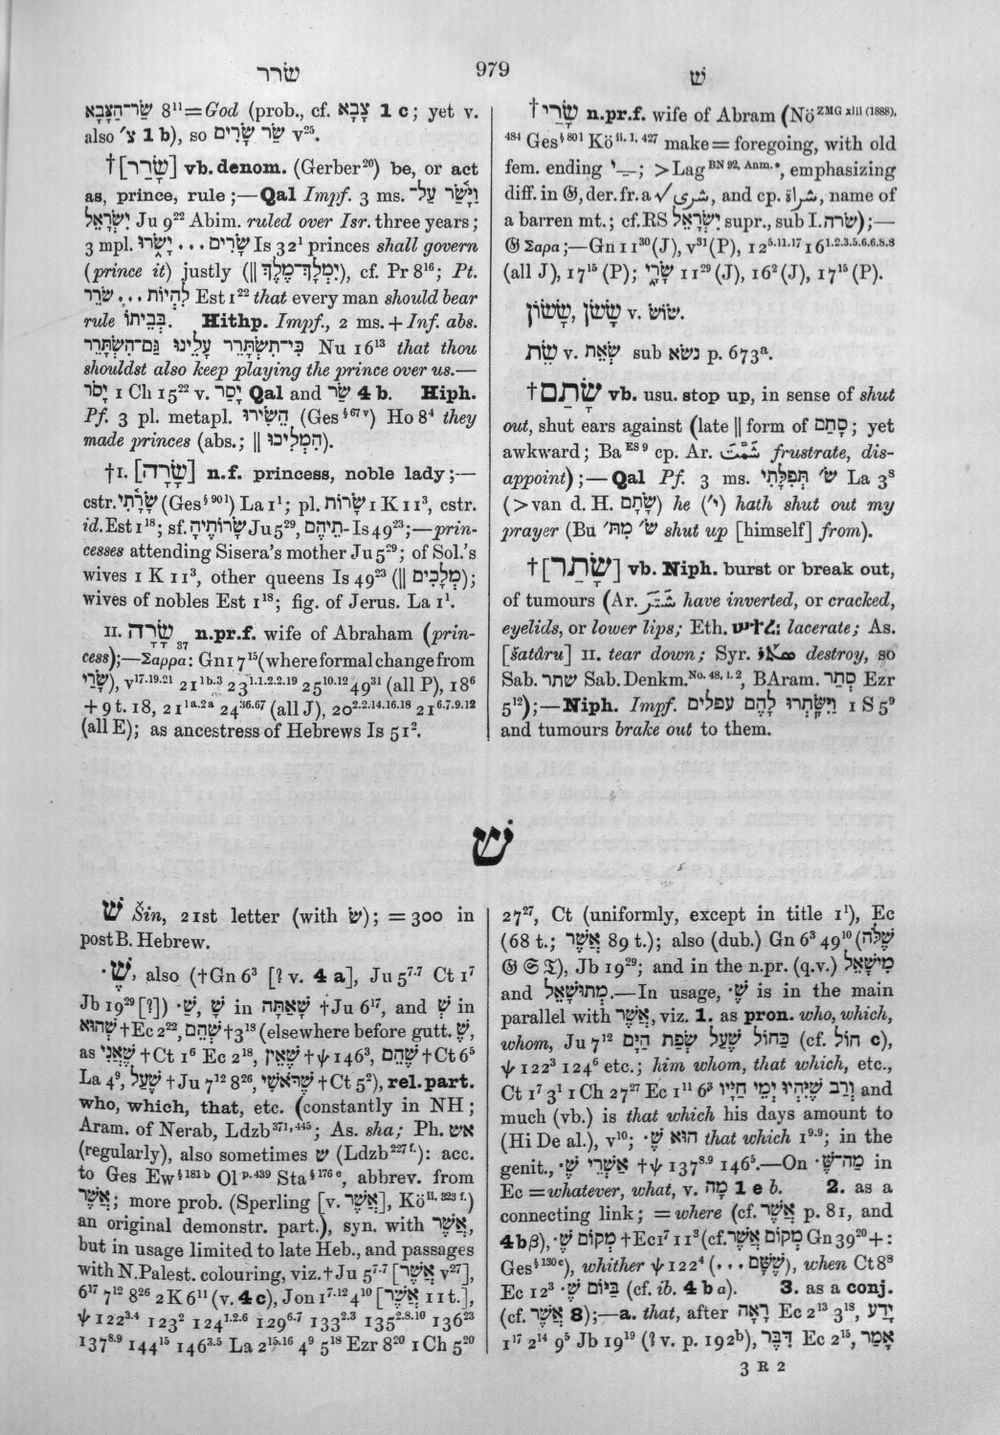 שׂרר
979
שׁ
שַׂר־הַצָּבָא 8¹¹ = God (prob., cf. צָבָא 1 c; yet v.
also צ׳ 1 b), so שַׂר שָׂרִים v²⁵.
†[שָׂרַר] vb. denom. (Gerber²⁰) be, or act
as, prince, rule;—Qal Impf. 3 ms. וַיָּ֫שַׂר עַל־
יִשְׂרָאֵל Ju 9²² Abim. ruled over Isr. three years;
3 mpl. שָׂרִים ... יָשֹׂ֫רוּ Is 32¹ princes shall govern
(prince it) justly (|| יִמְלָךְ־מֶלֶךְ), cf. Pr 8¹⁶; Pt.
לִהְיוֹת ... שֹׂרֵר Est 1²² that every man should bear
rule בְּבֵיתוֹ. Hithp. Impf., 2 ms. + Inf. abs.
כִּי־תִשְׂתָּרֵר עָלֵינוּ גַּם־הִשְׂתָּרֵר Nu 16¹³ that thou
shouldst also keep playing the prince over us.—
יָסֹר 1 Ch 15²² v. יָסַר Qal and שַׂר 4 b. Hiph.
Pf. 3 pl. metapl. הֵשִׂירוּ (Ges§67v) Ho 8⁴ they
made princes (abs.; || הִמְלִיכוּ).
†I. [שָׂרָה] n.f. princess, noble lady;—
cstr. שָׂרָ֫תִי (Ges§90l) La 1¹; pl. שָׂרוֹת 1 K 11³, cstr.
id. Est 1¹⁸; sf. שָׂרוֹתֶיהָ Ju 5²⁹, תֵיהֶם- Is 49²³;—prin-
cesses attending Sisera's mother Ju 5²⁹; of Sol.'s
wives 1 K 11³, other queens Is 49²³ (|| מְלָכִים);
wives of nobles Est 1¹⁸; fig. of Jerus. La 1¹.
II. שָׂרָה₃₇ n.pr.f. wife of Abraham (prin-
cess);—Σαρρα: Gn 17¹⁵ (where formal change from
שָׂרַי), v¹⁷·¹⁹·²¹ 21¹ᵇ·³ 23¹·¹·²·²·¹⁹ 25¹⁰·¹² 49³¹ (all P), 18⁶
+ 9 t. 18, 21¹ᵃ·²ᵃ 24³⁶·⁶⁷ (all J), 20²·²·¹⁴·¹⁶·¹⁸ 21⁶·⁷·⁹·¹²
(all E); as ancestress of Hebrews Is 51².
†שָׂרַי n.pr.f. wife of Abram (Nö ZMG xlii (1888),
484 Ges§80l Kö ii. 1, 427 make = foregoing, with old
fem. ending ־ַי; > Lag BN 92, Anm.*, emphasizing
diff. in 𝔊, der. fr. a √ شرى, and cp. شراة, name of
a barren mt.; cf. RS יִשְׂרָאֵל supr., sub I. שׂרה);—
𝔊 Σαρα;—Gn 11³⁰ (J), v³¹ (P), 12⁵·¹¹·¹⁷ 16¹·²·³·⁵·⁶·⁶·⁸·⁸
(all J), 17¹⁵ (P); שָׂרָ֑י 11²⁹ (J), 16² (J), 17¹⁵ (P).
שָׂשׂן, שָׂשׂוֹן v. שׂושׂ.
שֵׂת v. שְׂאֵת sub נשׂא p. 673ᵃ.
†שָׂתַם vb. usu. stop up, in sense of shut
out, shut ears against (late || form of סָתַם; yet
awkward; Ba ES 9 cp. Ar. frustrate, dis-
appoint);—Qal Pf. 3 ms. שׂ׳ תְּפִלָּתִי La 3⁸
(> van d. H. שָׂתָם) he (י׳) hath shut out my
prayer (Bu שׂ׳ מִתּ׳ shut up [himself] from).
†[שָׂתַר] vb. Niph. burst or break out,
of tumours (Ar. شتر have inverted, or cracked,
eyelids, or lower lips; Eth. lacerate; As.
[šatâru] II. tear down; Syr. destroy, so
Sab. שתר Sab. Denkm. No. 48, l. 2, BAram. סְתַר Ezr
5¹²);—Niph. Impf. וַיִּשָּׂתְרוּ לָהֶם עפלים 1 S 5⁹
and tumours brake out to them.
שׁ
שׁ Šin, 21st letter (with שׂ); = 300 in
post B. Hebrew.
שֶׁ·, also (†Gn 6³ [? v. 4 a], Ju 5⁷·⁷ Ct 1⁷
Jb 19²⁹ [?]) שַׁ·, שָׁ in שָׁאַתָּה †Ju 6¹⁷, and שְׁ in
שְׁהוּא †Ec 2²², שְׁהֶם †3¹⁸ (elsewhere before gutt. שֶׁ,
as שֶׁאֲנִי †Ct 1⁶ Ec 2¹⁸, שֶׁאֵין †ψ 146³, שֶׁהֵם †Ct 6⁵
La 4⁹, שֶׁעַל †Ju 7¹² 8²⁶, שֶׁרֹּאשִׁי †Ct 5²), rel. part.
who, which, that, etc. (constantly in NH;
Aram. of Nerab, Ldzb 371, 445; As. sha; Ph. אש
(regularly), also sometimes ש (Ldzb 227 f.): acc.
to Ges Ew§181 b Ol p. 439 Sta§176 e, abbrev. from
אֲשֶׁר; more prob. (Sperling [v. אֲשֶׁר], Kö ii. 323 f.)
an original demonstr. part.), syn. with אֲשֶׁר,
but in usage limited to late Heb., and passages
with N. Palest. colouring, viz. †Ju 5⁷·⁷ [אֲשֶׁר v²⁷],
6¹⁷ 7¹² 8²⁶ 2 K 6¹¹ (v. 4 c), Jon 1⁷·¹² 4¹⁰ [אֲשֶׁר 11 t.],
ψ 122³·⁴ 123² 124¹·²·⁶ 129⁶·⁷ 133²·³ 135²·⁸·¹⁰ 136²³
137⁸·⁹ 144¹⁵ 146³·⁵ La 2¹⁵·¹⁶ 4⁹ 5¹⁸ Ezr 8²⁰ 1 Ch 5²⁰
27²⁷, Ct (uniformly, except in title 1¹), Ec
(68 t.; אֲשֶׁר 89 t.); also (dub.) Gn 6³ 49¹⁰ (שֶׁלֹּה
𝔊 𝔖 𝔗), Jb 19²⁹; and in the n.pr. (q.v.) מִישָׁאֵל
and מְתוּשָׁאֵל.—In usage, שֶׁ· is in the main
parallel with אֲשֶׁר, viz. 1. as pron. who, which,
whom, Ju 7¹² כַּחוֹל שֶׁעַל שְׂפַת הַיָּם (cf. חוֹל c),
ψ 122³ 124⁶ etc.; him whom, that which, etc.,
Ct 1⁷ 3¹ 1 Ch 27²⁷ Ec 1¹¹ 6³ וְרַב שֶׁיִּהְיוּ יְמֵי חַיָּיו and
much (vb.) is that which his days amount to
(Hi De al.), v¹⁰; שֶׁ· הוּא that which 1⁹·⁹; in the
genit., אַשְׁרֵי שֶׁ· †ψ 137⁸·⁹ 146⁵.—On מַה־שֶּׁ· in
Ec = whatever, what, v. מָה 1 e b. 2. as a
connecting link; = where (cf. אֲשֶׁר p. 81, and
4 b β), מְקוֹם שֶׁ· †Ec 1⁷ 11³ (cf. מְקוֹם אֲשֶׁר Gn 39²⁰ +:
Ges§130c), whither ψ 122⁴ (שֶׁשָּׁם ...), when Ct 8⁸
Ec 12³ בַּיּוֹם שֶׁ· (cf. ib. 4 b a). 3. as a conj.
(cf. אֲשֶׁר 8);—a. that, after רָאָה Ec 2¹³ 3¹⁸, יָדַע
1¹⁷ 2¹⁴ 9⁵ Jb 19¹⁹ (? v. p. 192ᵇ), דִּבֶּר Ec 2¹⁵, אָמַר
3 R 2